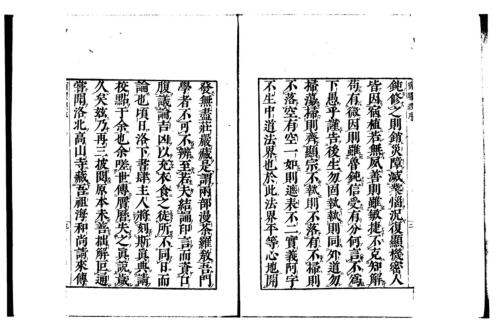 鈍修之則銷災障滅業惱況復顯機密人
皆因宿植若無夙善則雖敏捷不克知解
苟有微因則雖魯鈍信受有分何言不爲
下愚乎謹告後生勿固執執則同外道勿
掃蕩掃則齊顯宗不執則不落有不掃則
不落空有空一如則遮表不二實義阿字
不生中道法界也於此法界平等心地開
發無盡莊嚴藏是謂兩部漫荼羅敎吾門
學者不可不辨至若夫結誦印言而資口
腹議論吉凶以充衣食之徒所不同日而
論也頃日洛下書肆主人將刻斯眞典請
校點于余也余世傳失之眞說藏
久矣茲乃再三披閱原本未善拙解叵通
嘗聞洛北高山寺藏吾祖海和尚請來傳